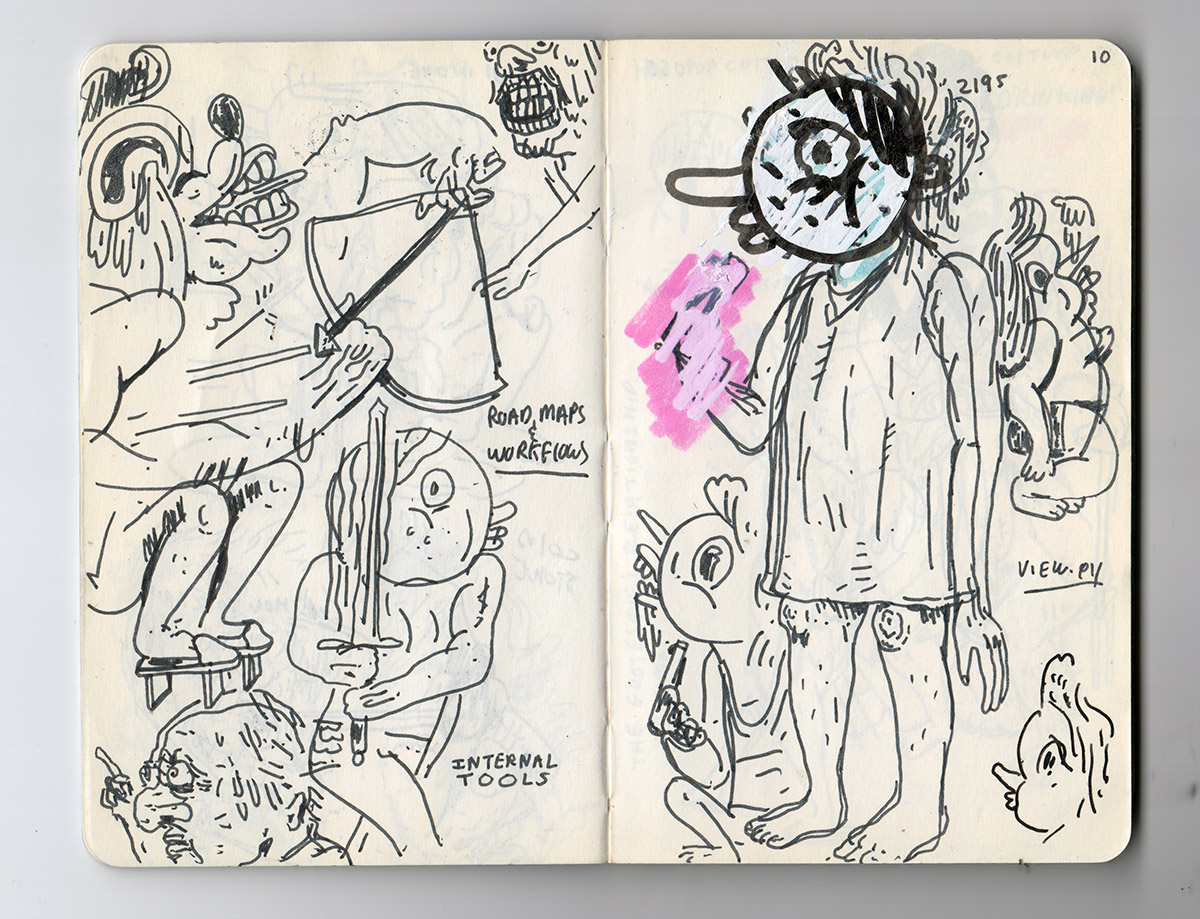 ROAD MAPS
&
WORKFLOWS
INTERNAL
TOOLS
10
2195
VIEW.PY